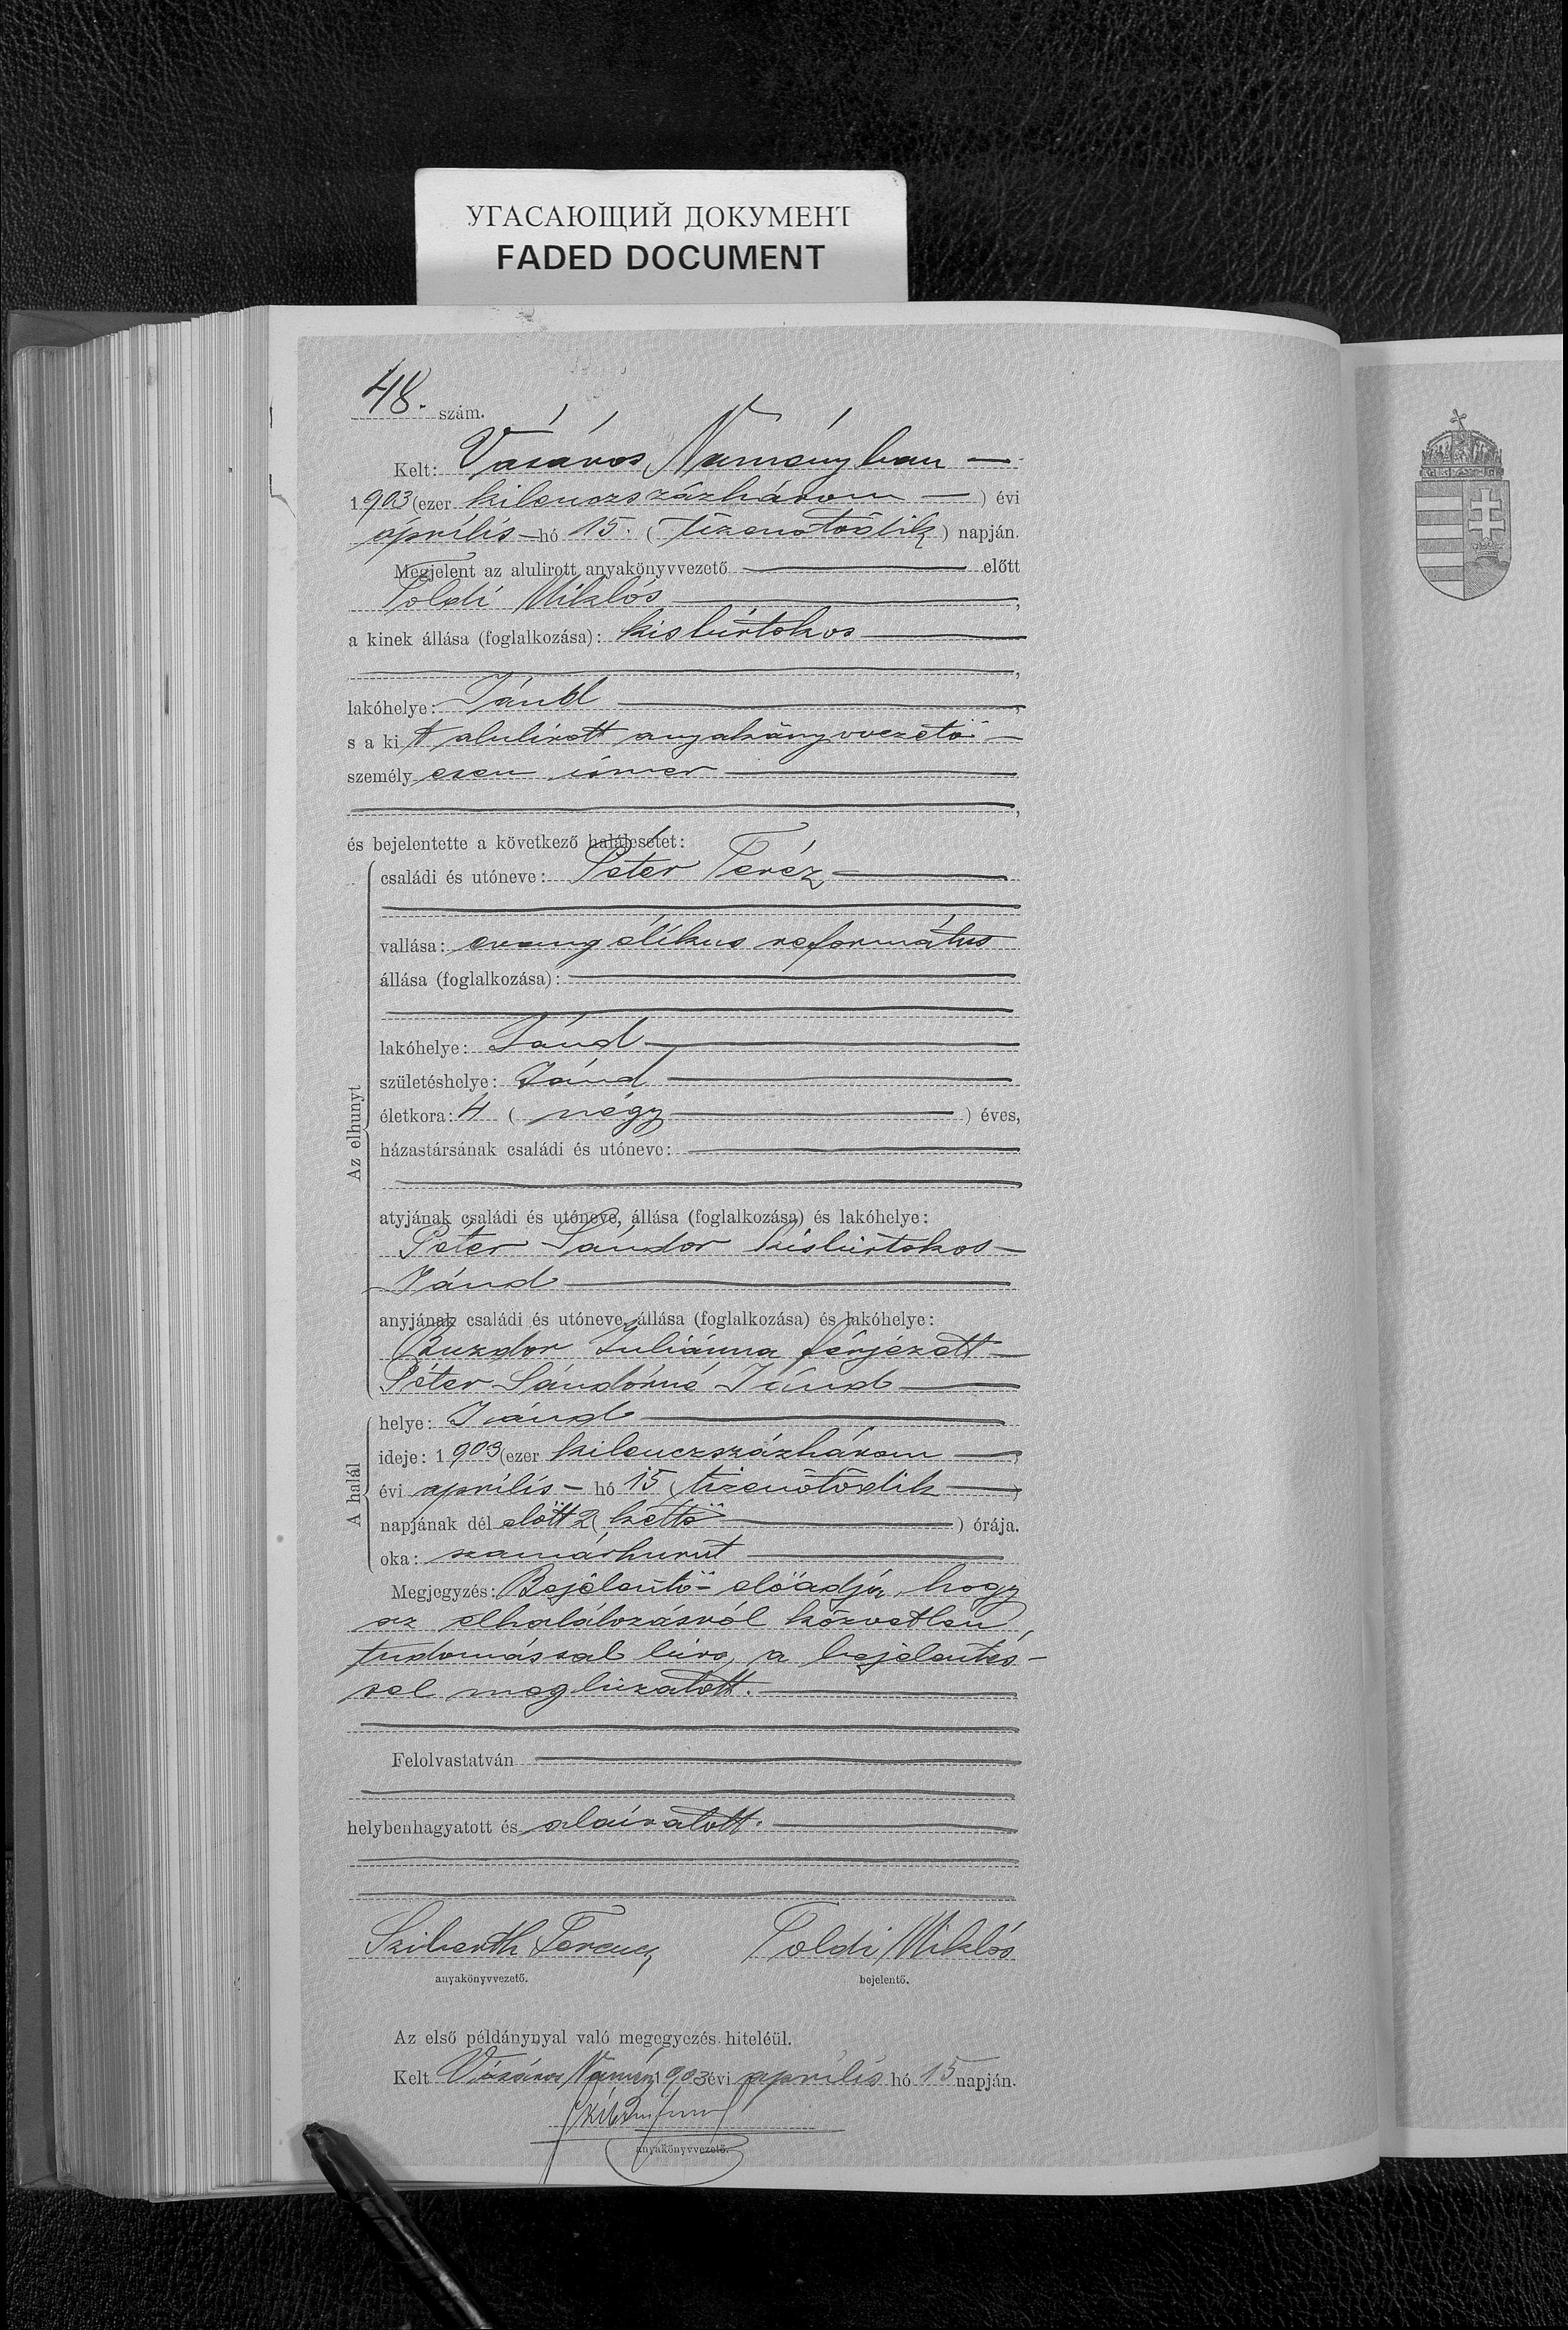 УГАСАЮЩИЙ ДОКУМЕНТ
FADED DOCUMENT
48. szám.
Kelt: Vásáros Naményban
1903 (ezer kilenczszázhárom ) évi
április hó 15. ( tizenötödik ) napján.
Megjelent az alulirott anyakönyvvezető előtt
Toldi Miklós ,
a kinek állása (foglalkozása): kisbirtokos
,
lakóhelye: Jánd ,
s a ki t alulirott anyakönyvvezető
személy esen ismer
,
és bejelentette a következő halálesetet:
Az elhunyt
családi és utóneve: Péter Teréz
vallása: evangélikus református
állása (foglalkozása):
lakóhelye: Jánd
születéshelye: Jánd
életkora: 4 ( négy ) éves,
házastársának családi és utóneve:
atyjának családi és utóneve, állása (foglalkozása) és lakóhelye:
Péter Sándor kisbirtokos
Jánd
anyjának családi és utóneve, állása (foglalkozása) és lakóhelye:
Buzdor Juliánna férjezett
Péter Sándorné Jánd
A halál
helye: Jánd
ideje: 1903 (ezer kilenczszázhárom )
évi április hó 15 ( tizenötödik )
napjának dél előtt 2 ( kettő ) órája.
oka: szamárhurut
Megjegyzés: Bejelentő előadja, hogy
az elhalálozásról közvetlen
tudomással bir, a bejelentés-
sel megbizatott.
Felolvastatván
helybenhagyatott és aláiratott.
Ferencz Toldi Miklós
anyakönyvvezető. bejelentő.
Az első példánynyal való megegyezés hiteléül.
Kelt Vásáros Namény 1903 évi április hó 15 napján.
anyakönyvvezető.